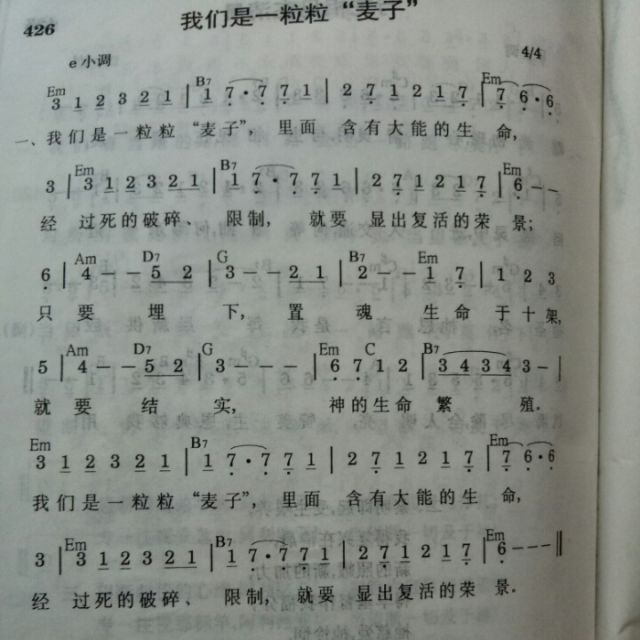 426
我们是一粒粒“麦子”
e小调 4/4
Em B7 Em
3 1 2 3 2 1 | 1 7 · 7 7 1 | 2 7 1 2 1 7 | 7 6 · 6
一、我们是一粒粒“麦子”, 里面 含有大能的生 命,
Em B7 Em
3 | 3 1 2 3 2 1 | 1 7 · 7 7 1 | 2 7 1 2 1 7 | 6 - -
经 过死的破碎、 限制, 就要 显出复活的荣 景;
Am D7 G B7 Em
6 | 4 - - 5 2 | 3 - - 2 1 | 2 - - 1 7 | 1 2 3
只 要 埋 下, 置 魂 生命于十架,
Am D7 G Em C B7
5 | 4 - - 5 2 | 3 - - - | 6 7 1 2 | 3 4 3 4 3 - |
就 要 结 实, 神的生命 繁 殖.
Em B7 Em
3 1 2 3 2 1 | 1 7 · 7 7 1 | 2 7 1 2 1 7 | 7 6 · 6
我们是一粒粒“麦子”, 里面 含有大能的生 命,
Em B7 Em
3 | 3 1 2 3 2 1 | 1 7 · 7 7 1 | 2 7 1 2 1 7 | 6 - - - ‖
经 过死的破碎、 限制, 就要 显出复活的荣 景.